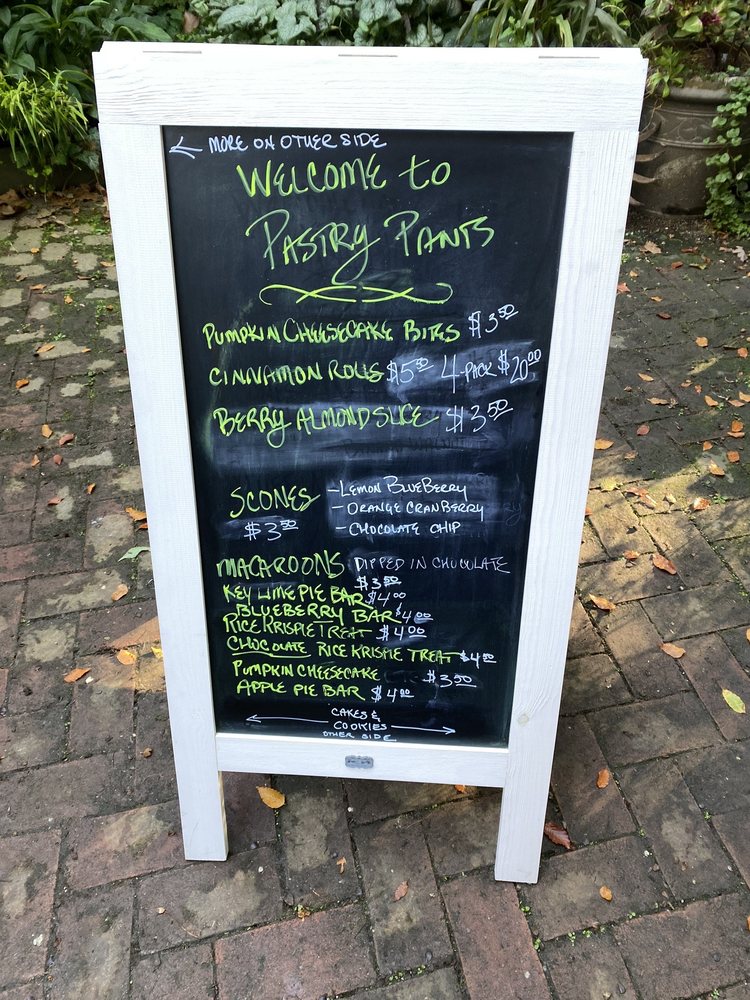 ← MORE ON OTHER SIDE
WELCOME to
PASTRY PANTS
PUMPKIN CHEESECAKE BITES $3.50
CINNAMON ROLLS $5.50 4-PACK $20.00
BERRY ALMOND SLICE $3.50
SCONES -LEMON BLUEBERRY
$3.50 -ORANGE CRANBERRY
-CHOCOLATE CHIP
MACAROONS DIPPED IN CHOCOLATE
$3.50
KEY LIME PIE BAR $4.00
BLUEBERRY BAR $4.00
RICE KRISPIE TREAT $4.00
CHOCOLATE RICE KRISPIE TREAT $4.00
PUMPKIN CHEESECAKE $3.50
APPLE PIE BAR $4.00
CAKES &
← COOKIES →
OTHER SIDE